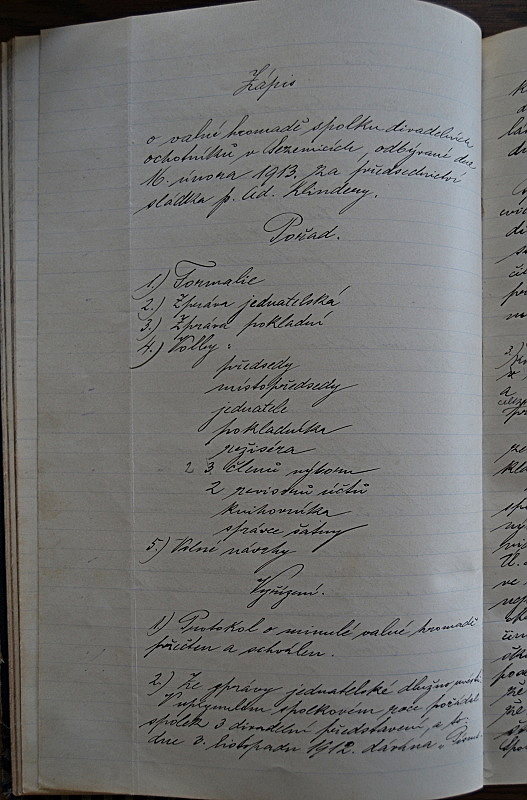 Zápis
o valné hromadě spolku divadelních
ochotníků v Sezemicích, odbývané dne
16. února 1913. za předsednictví
sládka p. Ad. Klindery.
Pořad.
1.) Formalie
2.) Zpráva jednatelská
3.) Zpráva pokladní
4.) Volby:
předsedy
místopředsedy
jednatele
pokladníka
režiséra
2 3 členů výboru
2 revisorů účtů
knihovníka
správce šatny
5.) Volné návrhy
Vyřízení.
1) Protokol o minulé valné hromadě
přečten a schválen.
2.) Ze zprávy jednatelské dlužno uvésti:
V uplynulém spolkovém roce pořádal
spolek 3 divadelní představení, a to:
dne 3. listopadu 1912. dávána „